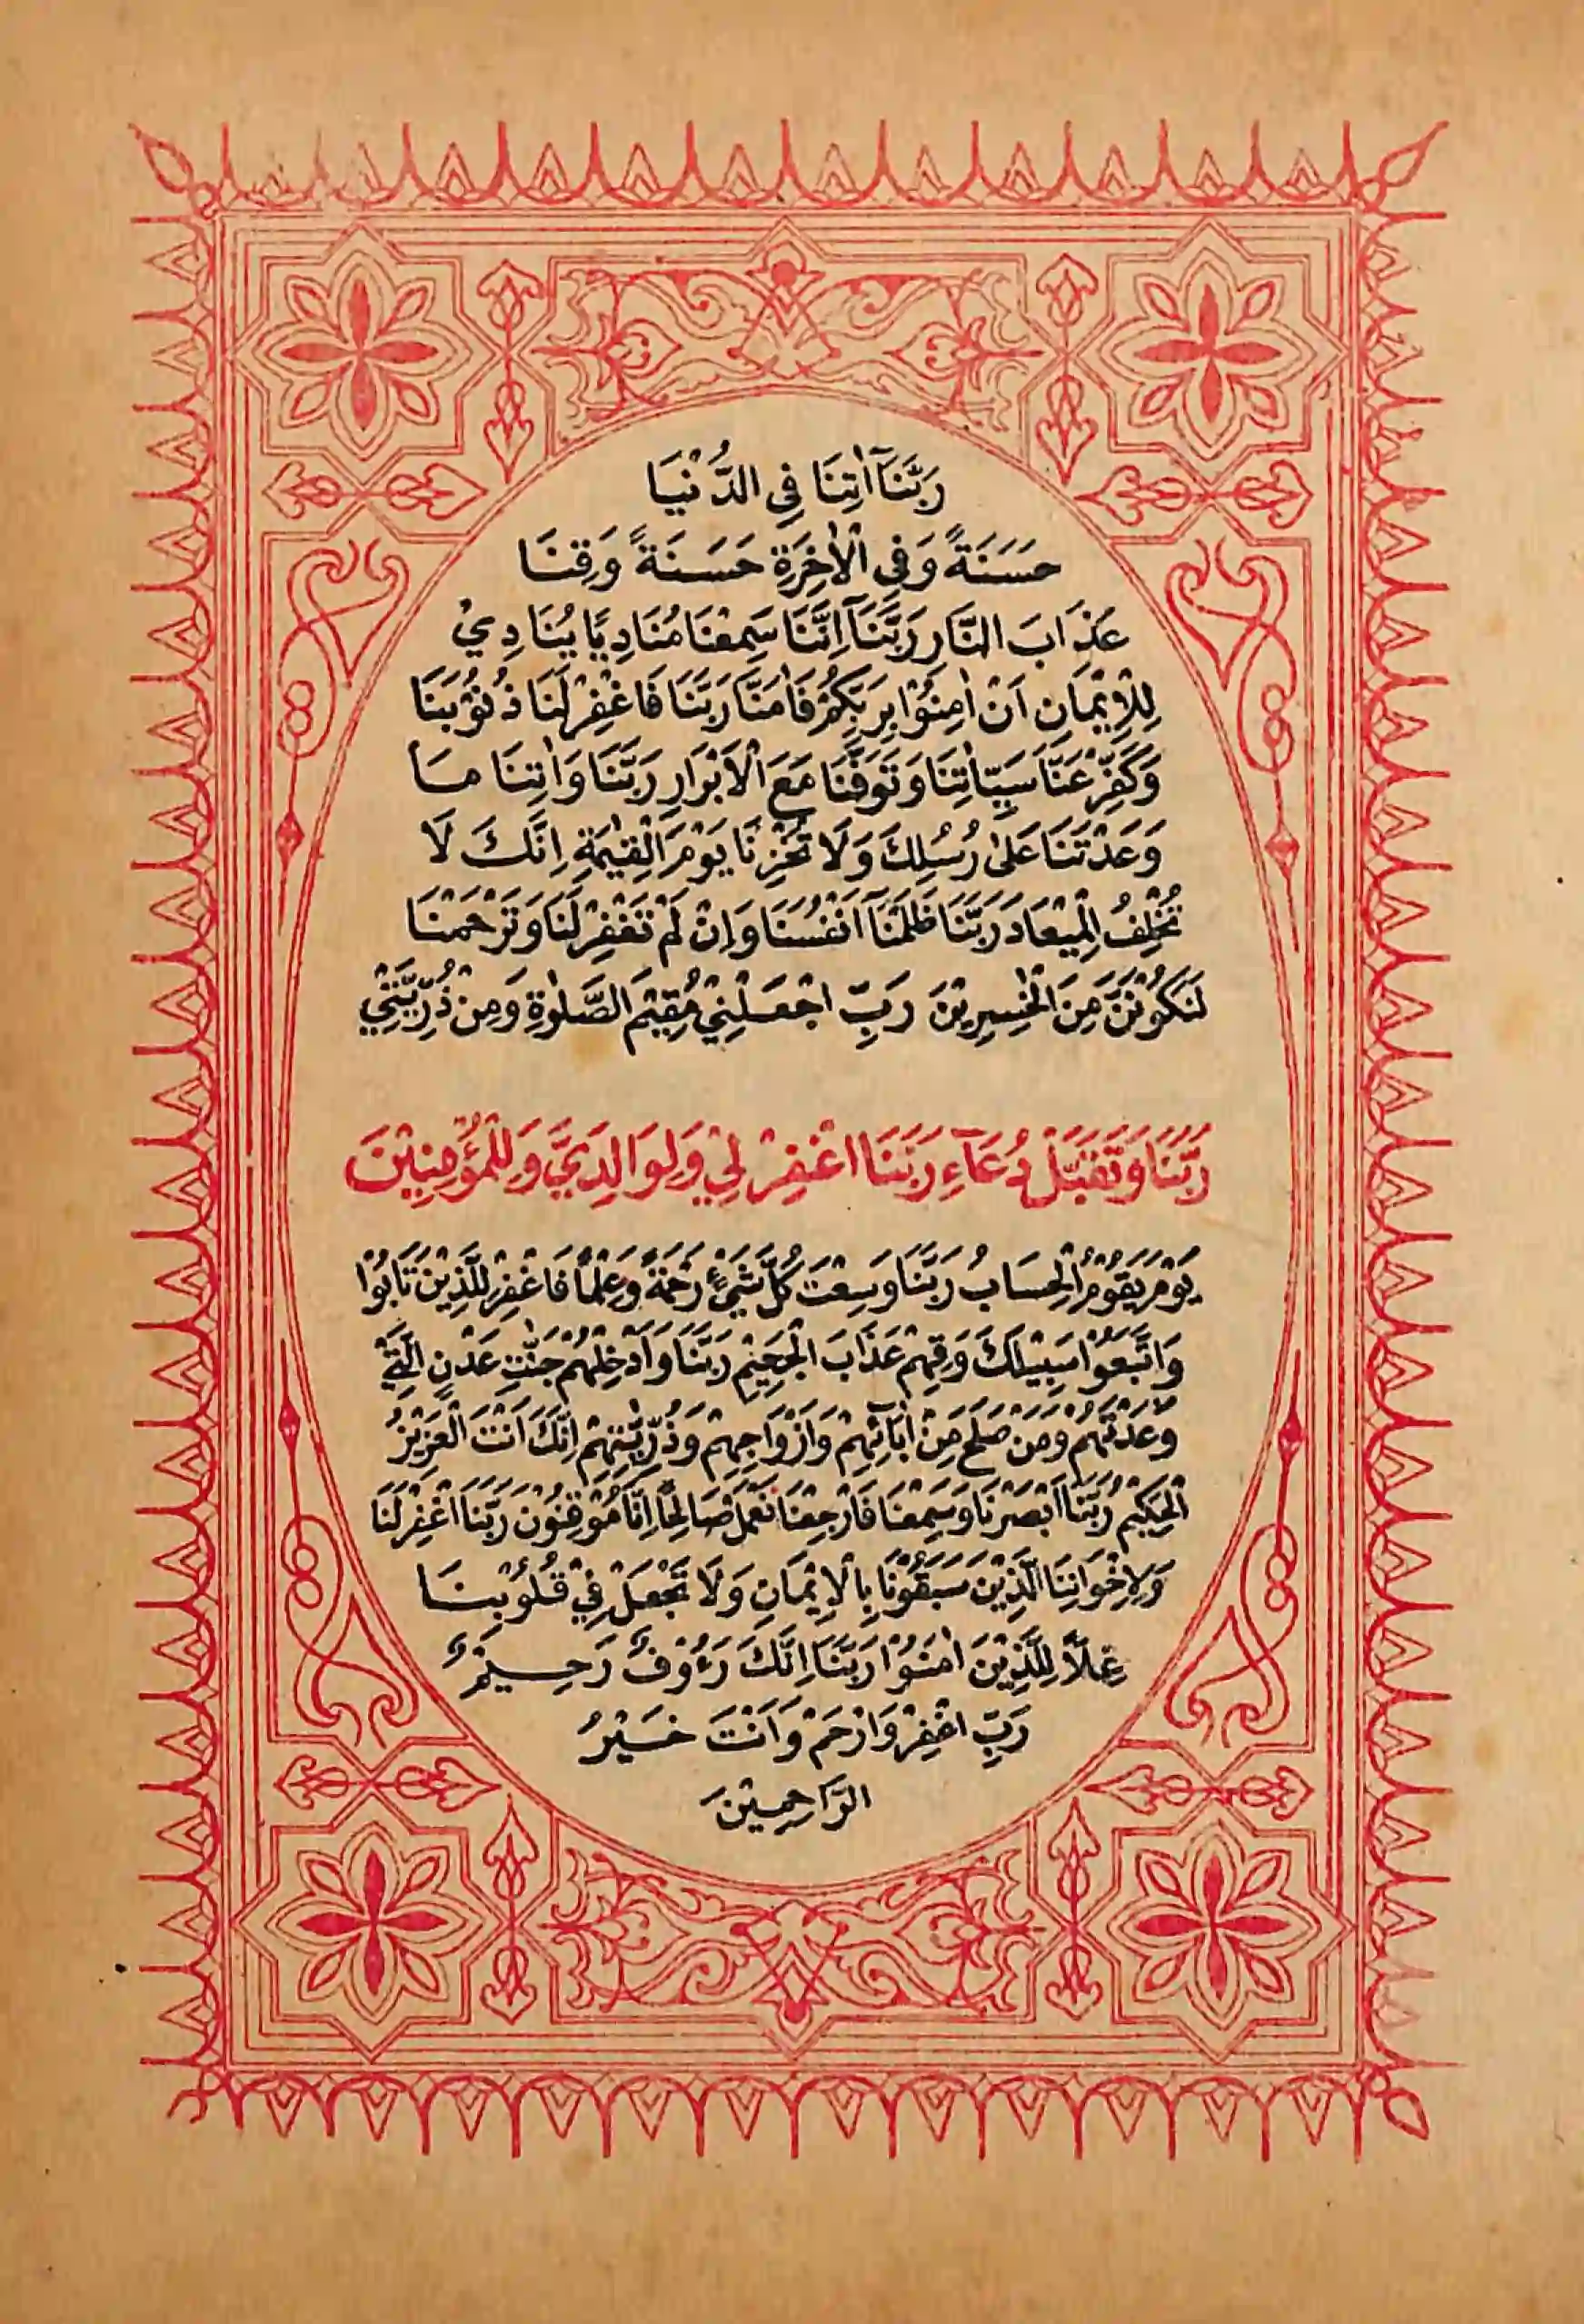 رَبَّنَآ اٰتِنَا فِي الدُّنْيَا
حَسَنَةً وَفِي الْاٰخِرَةِ حَسَنَةً وَقِنَا
عَذَابَ النَّارِ رَبَّنَآ اِنَّنَا سَمِعْنَا مُنَادِيًا يُنَادِيْ
لِلْاِيْمَانِ اَنْ اٰمِنُوْا بِرَبِّكُمْ فَاٰمَنَّا رَبَّنَا فَاغْفِرْ لَنَا ذُنُوْبَنَا
وَكَفِّرْ عَنَّا سَيِّاٰتِنَا وَتَوَفَّنَا مَعَ الْاَبْرَارِ رَبَّنَا وَاٰتِنَا مَا
وَعَدْتَنَا عَلٰى رُسُلِكَ وَلَا تُخْزِنَا يَوْمَ الْقِيٰمَةِ اِنَّكَ لَا
تُخْلِفُ الْمِيْعَادَ رَبَّنَا ظَلَمْنَآ اَنْفُسَنَا وَاِنْ لَمْ تَغْفِرْ لَنَا وَتَرْحَمْنَا
لَنَكُوْنَنَّ مِنَ الْخٰسِرِيْنَ رَبِّ اجْعَلْنِيْ مُقِيْمَ الصَّلٰوةِ وَمِنْ ذُرِّيَّتِيْ
رَبَّنَا وَتَقَبَّلْ دُعَآءِ رَبَّنَا اغْفِرْ لِيْ وَلِوَالِدَيَّ وَلِلْمُؤْمِنِيْنَ
يَوْمَ يَقُوْمُ الْحِسَابُ رَبَّنَا وَسِعْتَ كُلَّ شَيْءٍ رَحْمَةً وَعِلْمًا فَاغْفِرْ لِلَّذِيْنَ تَابُوْا
وَاتَّبَعُوْا سَبِيْلَكَ وَقِهِمْ عَذَابَ الْجَحِيْمِ رَبَّنَا وَاَدْخِلْهُمْ جَنّٰتِ عَدْنِ الَّتِيْ
وَعَدْتَهُمْ وَمَنْ صَلَحَ مِنْ اٰبَآئِهِمْ وَاَزْوَاجِهِمْ وَذُرِّيّٰتِهِمْ اِنَّكَ اَنْتَ الْعَزِيْزُ
الْحَكِيْمُ رَبَّنَآ اَبْصَرْنَا وَسَمِعْنَا فَارْجِعْنَا نَعْمَلْ صَالِحًا اِنَّا مُوْقِنُوْنَ رَبَّنَا اغْفِرْ لَنَا
وَلِاِخْوَانِنَا الَّذِيْنَ سَبَقُوْنَا بِالْاِيْمَانِ وَلَا تَجْعَلْ فِيْ قُلُوْبِنَا
غِلًّا لِلَّذِيْنَ اٰمَنُوْا رَبَّنَا اِنَّكَ رَءُوْفٌ رَحِيْمٌ
رَبِّ اغْفِرْ وَارْحَمْ وَاَنْتَ خَيْرُ
الرَّاحِمِيْنَ